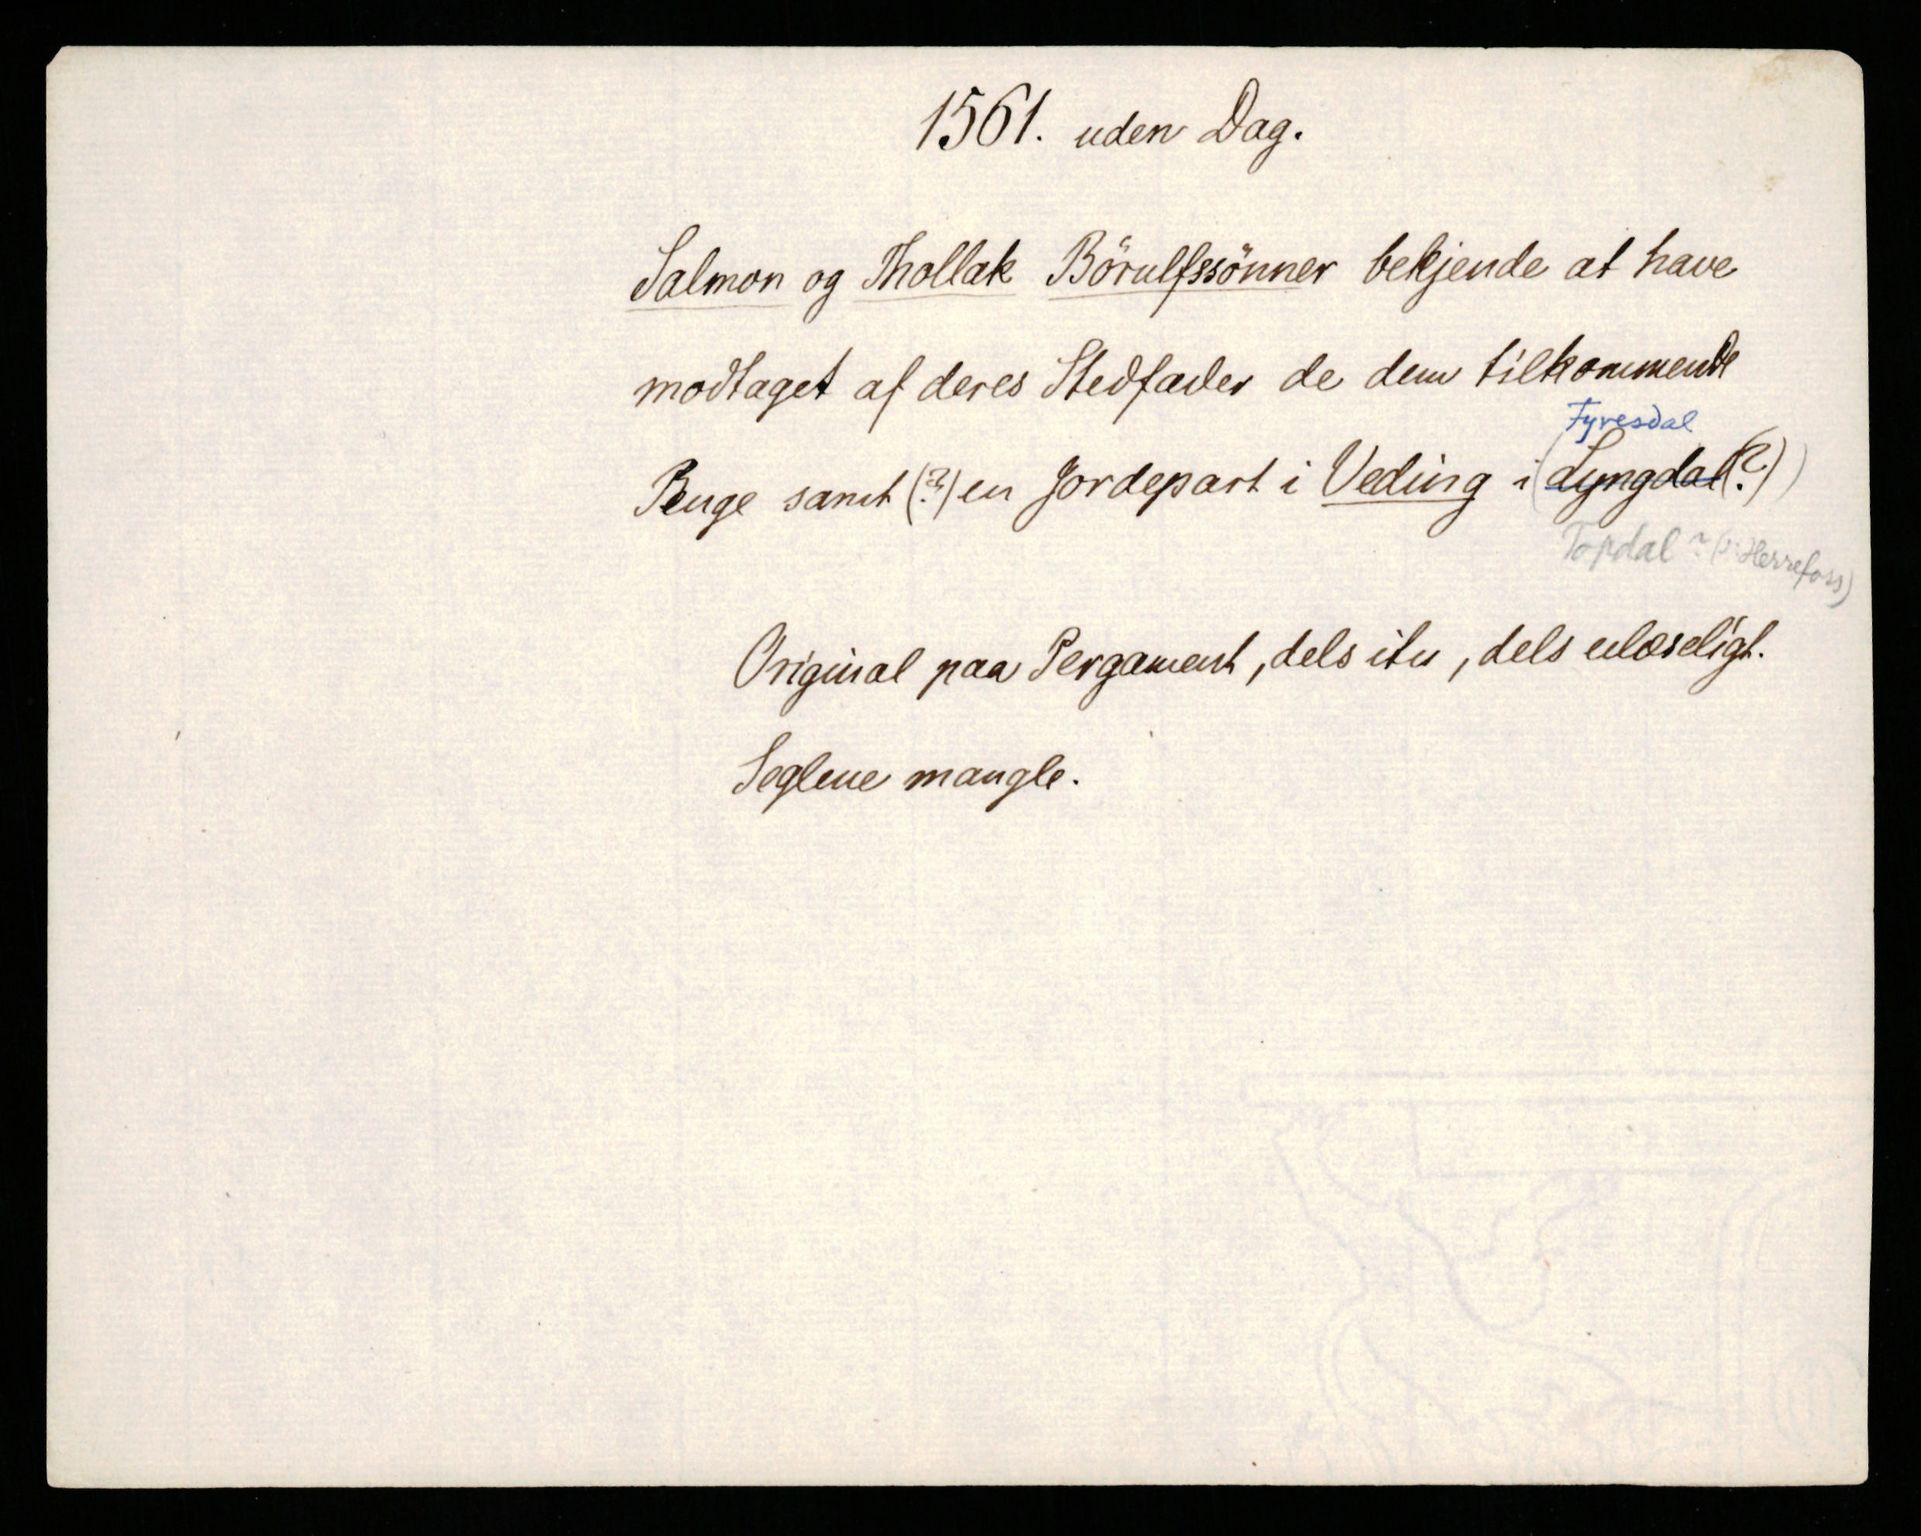 1561. uden Dag.
Salmon og Thollak Börulfssönner bekjende at have
modtaget af deres Stedfader de dem tilkommende
Fyresdal
Penge samt (?) en Jordepart i Veding i (Lyngdal (?))
Topdal ? (Herrefoss)
Original paa Pergament, dels itu, dels ulæseligt.
Seglene mangle.